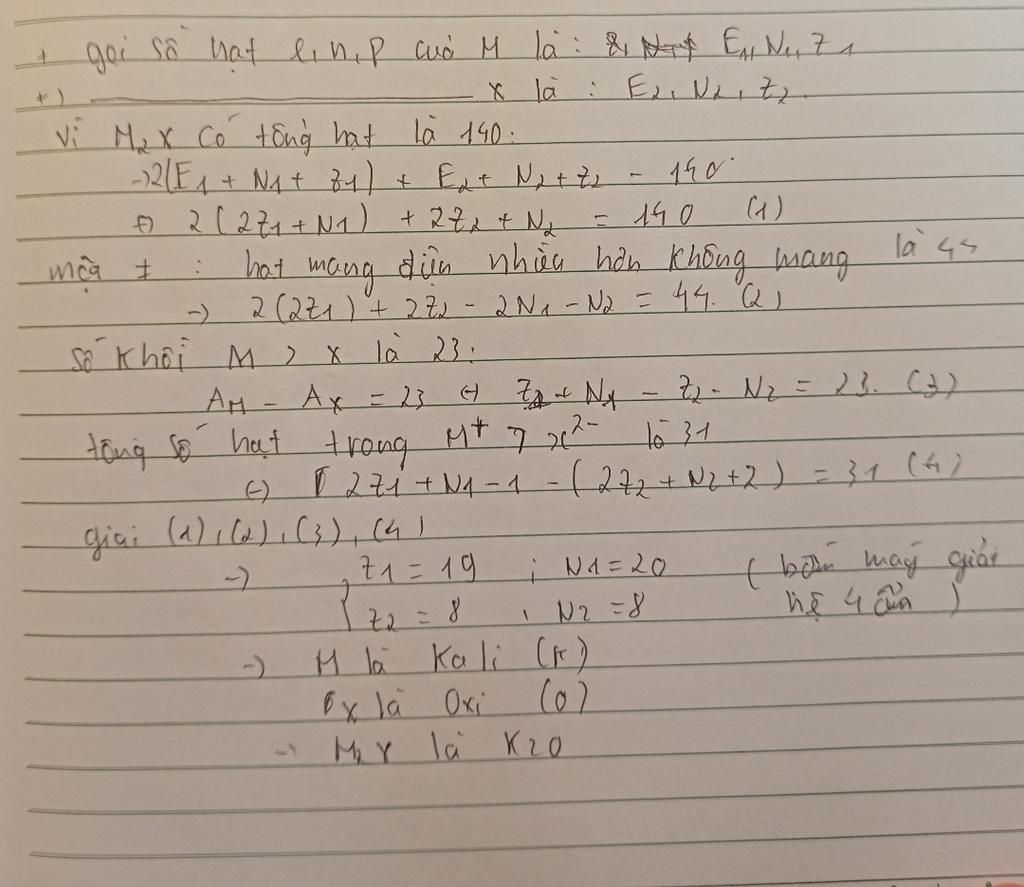 + gọi số hạt e, n, p của M là : E1, N1, Z1
+) ——————— X là : E2, N2, Z2
Vì M2X có tổng hạt là 140:
→ 2(E1 + N1 + Z1) + E2 + N2 + Z2 = 140
↔ 2(2Z1 + N1) + 2Z2 + N2 = 140 (1)
mặt ≠ : hạt mang điện nhiều hơn không mang là 44
→ 2(2Z1) + 2Z2 - 2N1 - N2 = 44. (2)
số khối M > X là 23:
AM - AX = 23 ↔ Z1 + N1 - Z2 - N2 = 23. (3)
tổng số hạt trong M+ > X2- là 31
↔ 2Z1 + N1 - 1 - (2Z2 + N2 + 2) = 31 (4)
giải (1), (2), (3), (4)
→ { Z1 = 19 ; N1 = 20 ( bấm máy giải
Z2 = 8 , N2 = 8 hệ 4 ẩn )
→ M là Kali (K)
X là Oxi (O)
→ M2X là K2O